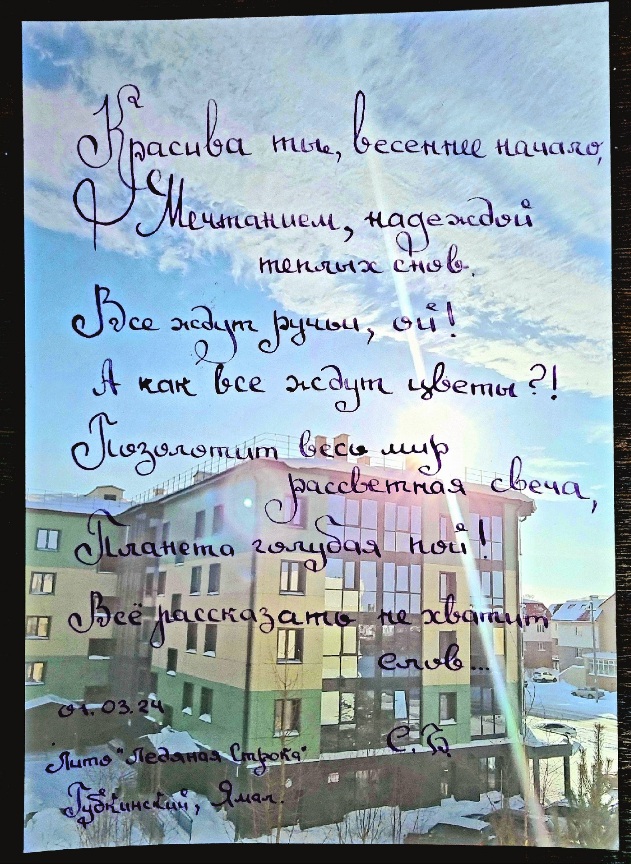 Красива ты, весеннее начало,
Мечтанием, надеждой
теплых снов.
Все ждут ручьи, ой!
А как все ждут цветы?!
Позолотит весь мир
рассветная свеча,
Планета голубая пой!
Всё рассказать не хватит
слов...
01.03.24
С.Б
Лито "Ледяная Строка"
Губкинский, Ямал.